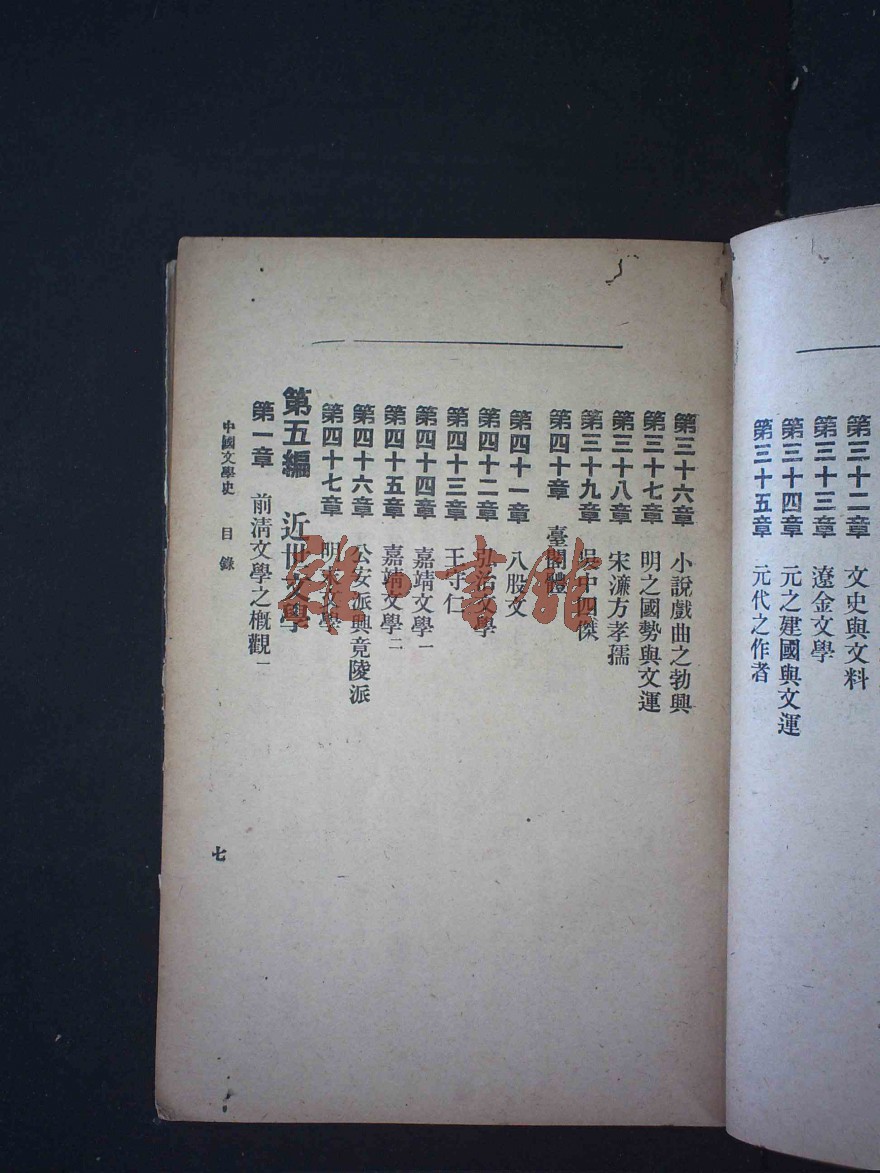 第三十二章　文史與文料
第三十三章　遼金文學
第三十四章　元之建國與文運
第三十五章　元代之作者
第三十六章　小說戲曲之勃興
第三十七章　明之國勢與文運
第三十八章　宋濂方孝孺
第三十九章　吳中四傑
第四十章　臺閣體
第四十一章　八股文
第四十二章　弘治文學
第四十三章　王守仁
第四十四章　嘉靖文學一
第四十五章　嘉靖文學二
第四十六章　公安派與竟陵派
第四十七章　明末文學
第五編　近世文學
第一章　前清文學之槪觀一
中國文學史　目錄
七
書館